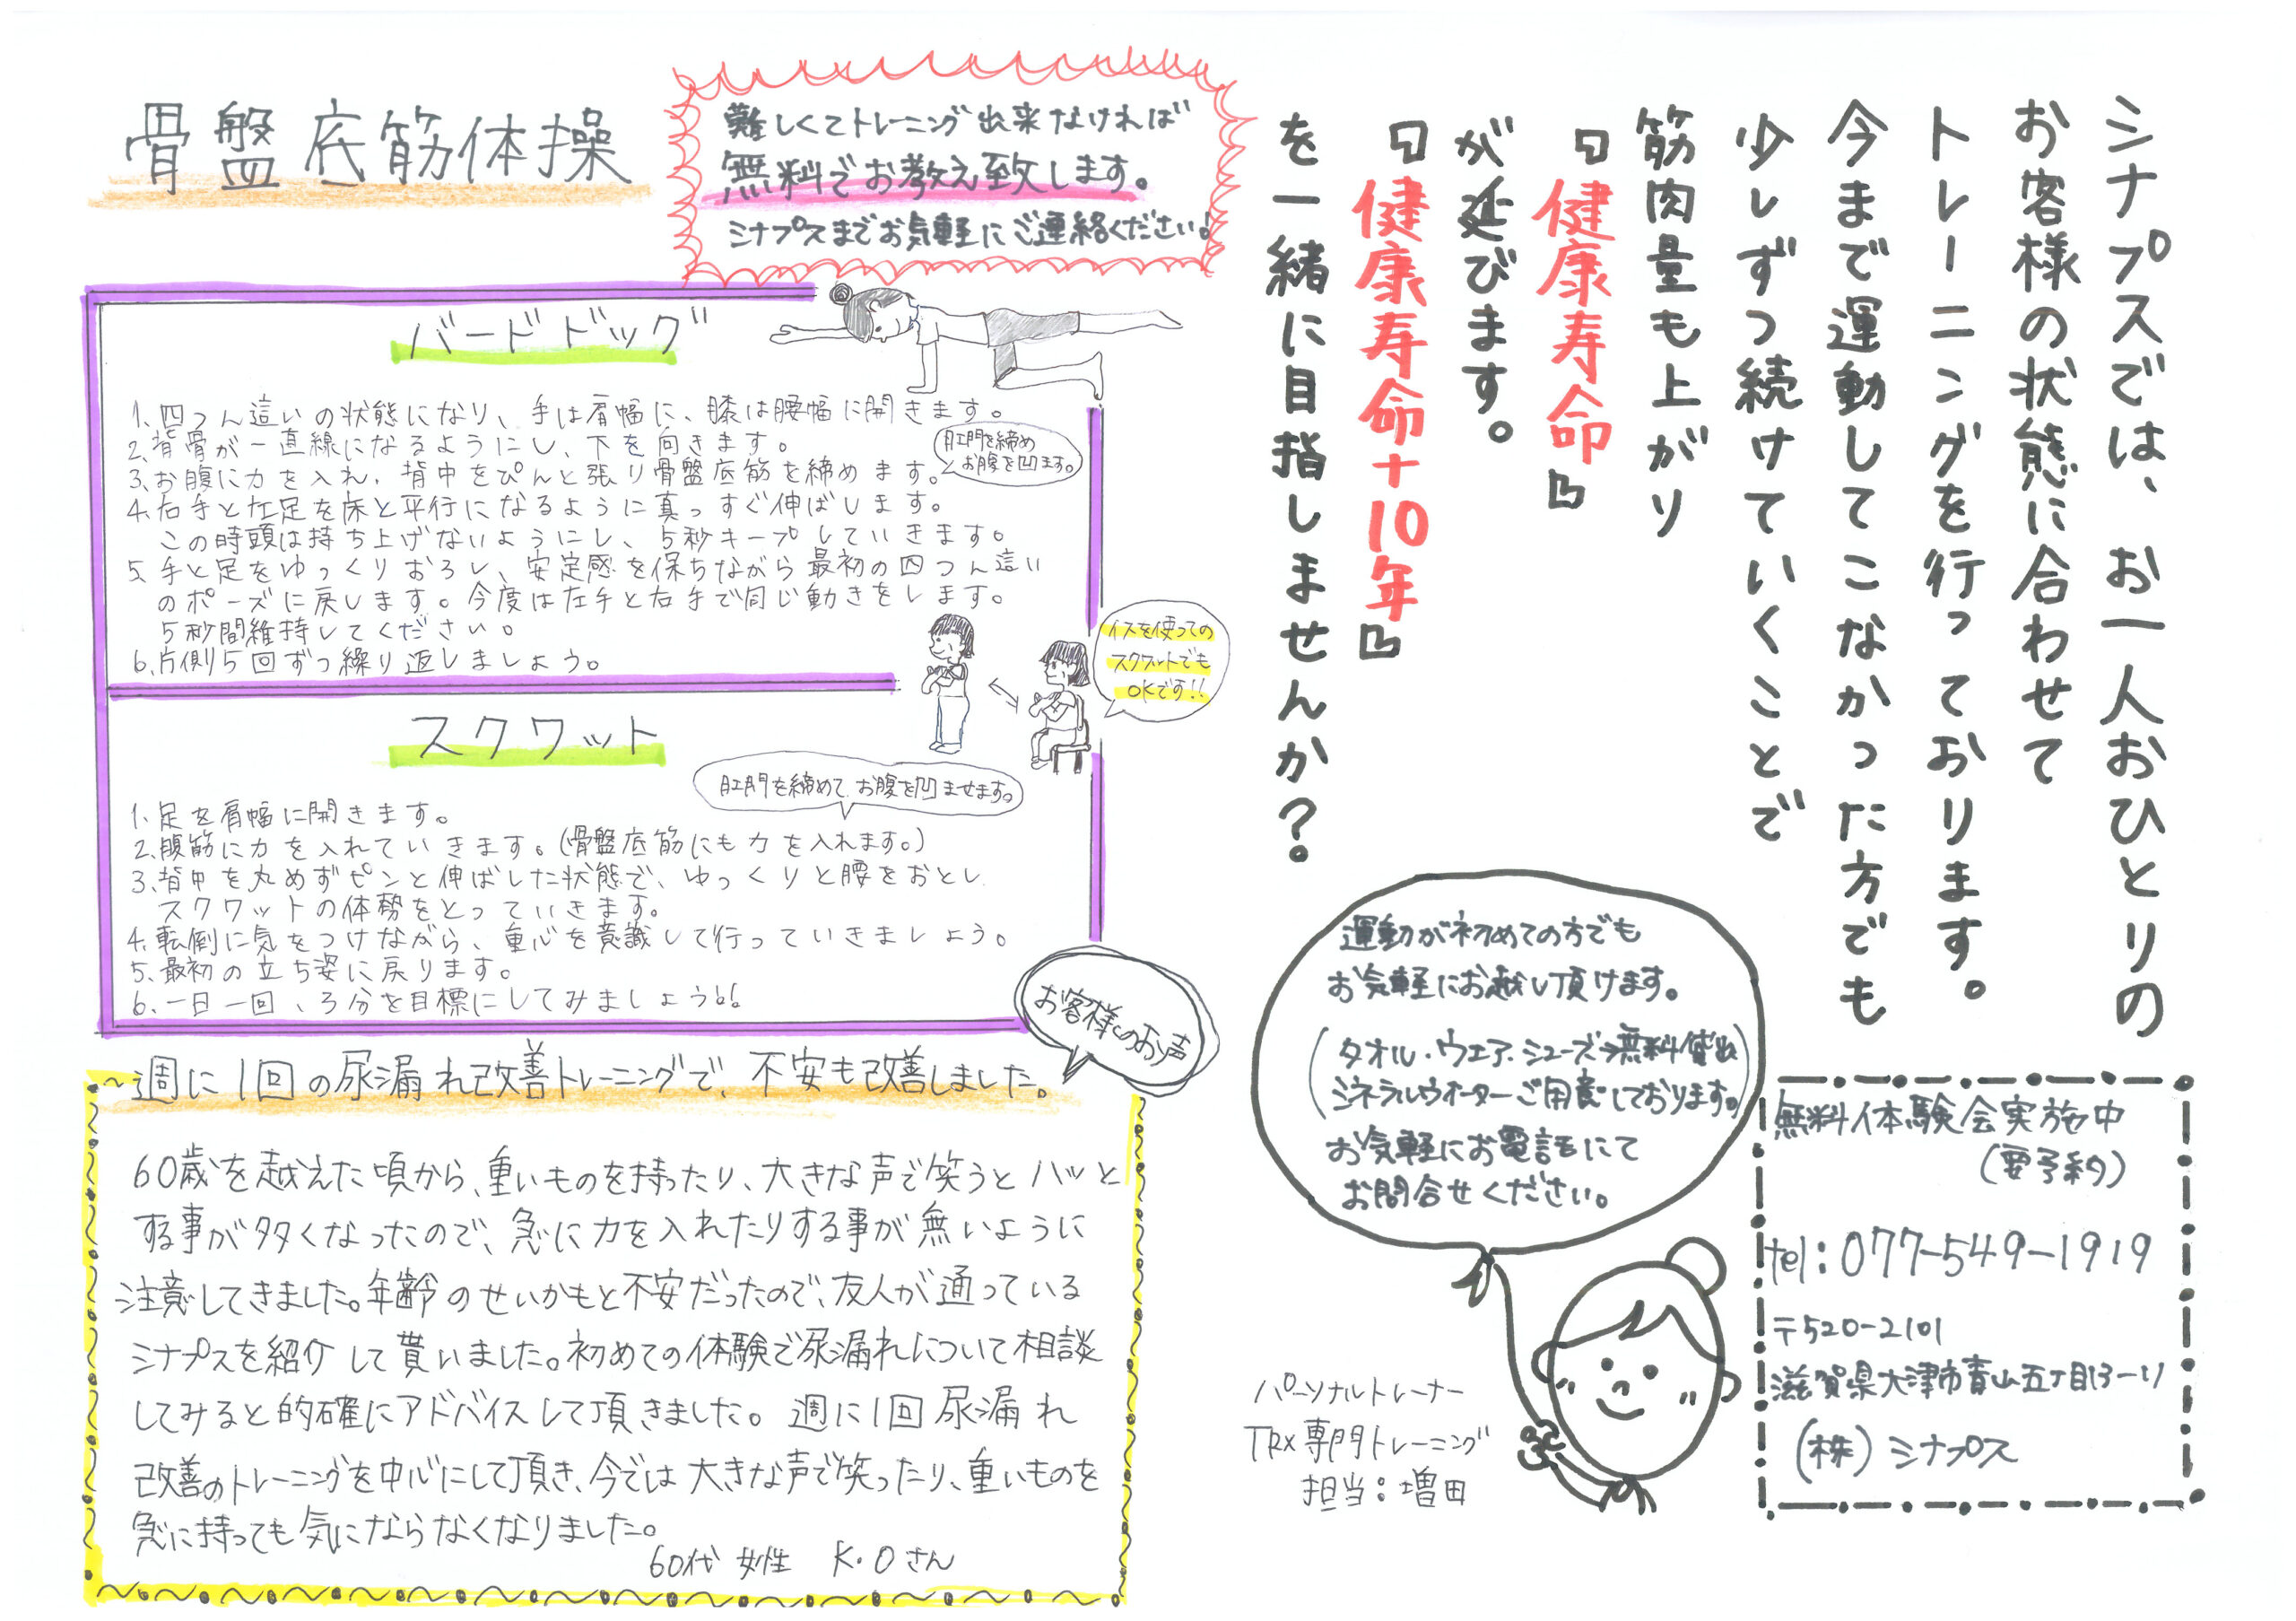 骨盤底筋体操
難しくてトレーニング出来なければ
無料でお教え致します。
シナプスまでお気軽にご連絡ください!
バードドッグ
1.四つん這いの状態になり、手は肩幅に、膝は腰幅に開きます。
2.背骨が一直線になるようにし、下を向きます。
3.お腹に力を入れ、背中をぴんと張り骨盤底筋を締めます。
肛門を締め
お腹を凹ます。
4.右手と左足を床と平行になるように真っすぐ伸ばします。
この時頭は持ち上げないようにし、5秒キープしていきます。
5.手と足をゆっくりおろし、安定感を保ちながら最初の四つん這い
のポーズに戻します。今度は左手と右手で同じ動きをします。
5秒間維持してください。
6.片側5回ずつ繰り返しましょう。
イスを使っての
スクワットでも
OKです!!
スクワット
肛門を締めて、お腹を凹ませます。
1.足を肩幅に開きます。
2.腹筋に力を入れていきます。(骨盤底筋にも力を入れます。)
3.背中を丸めずピンと伸ばした状態で、ゆっくりと腰をおとし
スクワットの体勢をとっていきます。
4.転倒に気をつけながら、重心を意識して行っていきましょう。
5.最初の立ち姿に戻ります。
6.一日一回、3分を目標にしてみましょう!!
お客様のお声
~週に1回の尿漏れ改善トレーニングで、不安も改善しました。
60歳を越えた頃から、重いものを持ったり、大きな声で笑うとハッと
する事が多くなったので、急に力を入れたりする事が無いように
注意してきました。年齢のせいかもと不安だったので、友人が通っている
シナプスを紹介して貰いました。初めての体験で尿漏れについて相談
してみると的確にアドバイスして頂きました。週に1回尿漏れ
改善のトレーニングを中心にして頂き、今では大きな声で笑ったり、重いものを
急に持っても気にならなくなりました。
60代 女性 K.Oさん
シナプスでは、お一人おひとりの
お客様の状態に合わせて
トレーニングを行っております。
今まで運動してこなかった方でも
少しずつ続けていくことで
筋肉量も上がり
『健康寿命』
が延びます。
『健康寿命+10年』
を一緒に目指しませんか?
運動が初めての方でも
お気軽にお越し頂けます。
(タオル・ウエア・シューズ→無料貸出
ミネラルウォーターご用意しております。)
お気軽にお電話にて
お問合せください。
パーソナルトレーナー
TRX専門トレーニング
担当:増田
無料体験会実施中
(要予約)
tel:077-549-1919
〒520-2101
滋賀県大津市青山五丁目13-11
(株)シナプス